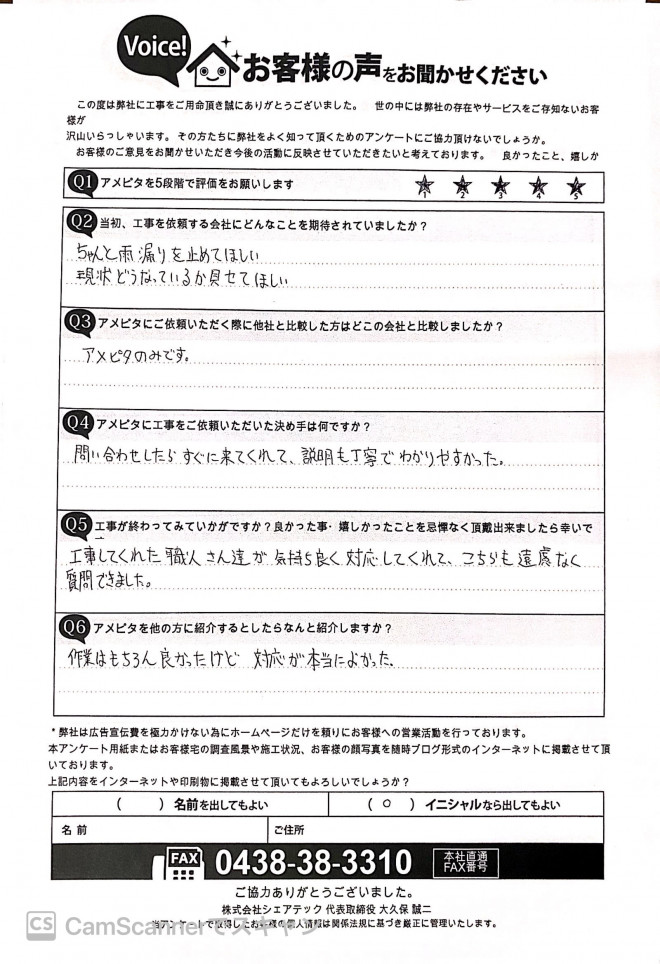 Voice!
お客様の声をお聞かせください
この度は弊社に工事をご用命頂き誠にありがとうございました。 世の中には弊社の存在やサービスをご存知ないお客
様が
沢山いらっしゃいます。その方たちに弊社をよく知って頂くためのアンケートにご協力頂けないでしょうか。
お客様のご意見をお聞かせいただき今後の活動に反映させていただきたいと考えております。 良かったこと、嬉しか
Q1 アメピタを5段階で評価をお願いします
1 2 3 4 5
Q2 当初、工事を依頼する会社にどんなことを期待されていましたか？
ちゃんと雨漏りを止めてほしい
現状どうなっているか見せてほしい
Q3 アメピタにご依頼いただく際に他社と比較した方はどこの会社と比較しましたか？
アメピタのみです。
Q4 アメピタに工事をご依頼いただいた決め手は何ですか？
問い合わせしたらすぐに来てくれて、説明も丁寧でわかりやすかった。
Q5 工事が終わってみていかがですか？良かった事・嬉しかったことを忌憚なく頂戴出来ましたら幸いで
工事してくれた職人さん達が気持ち良く対応してくれて、こちらも遠慮なく
質問できました。
Q6 アメピタを他の方に紹介するとしたらなんと紹介しますか？
作業はもちろん良かったけど 対応が本当によかった。
*弊社は広告宣伝費を極力かけない為にホームページだけを頼りにお客様への営業活動を行っております。
本アンケート用紙またはお客様宅の調査風景や施工状況、お客様の顔写真を随時ブログ形式のインターネットに掲載させて頂
いております。
上記内容をインターネットや印刷物に掲載させて頂いてもよろしいでしょうか？
( ) 名前を出してもよい ( ○ ) イニシャルなら出してもよい
名前 ご住所
FAX 0438-38-3310 本社直通
FAX番号
ご協力ありがとうございました。
株式会社シェアテック 代表取締役 大久保 誠二
当アンケートで取得したお客様の個人情報は関係法規に基づき厳正に管理いたします。
CS CamScannerでスキャン